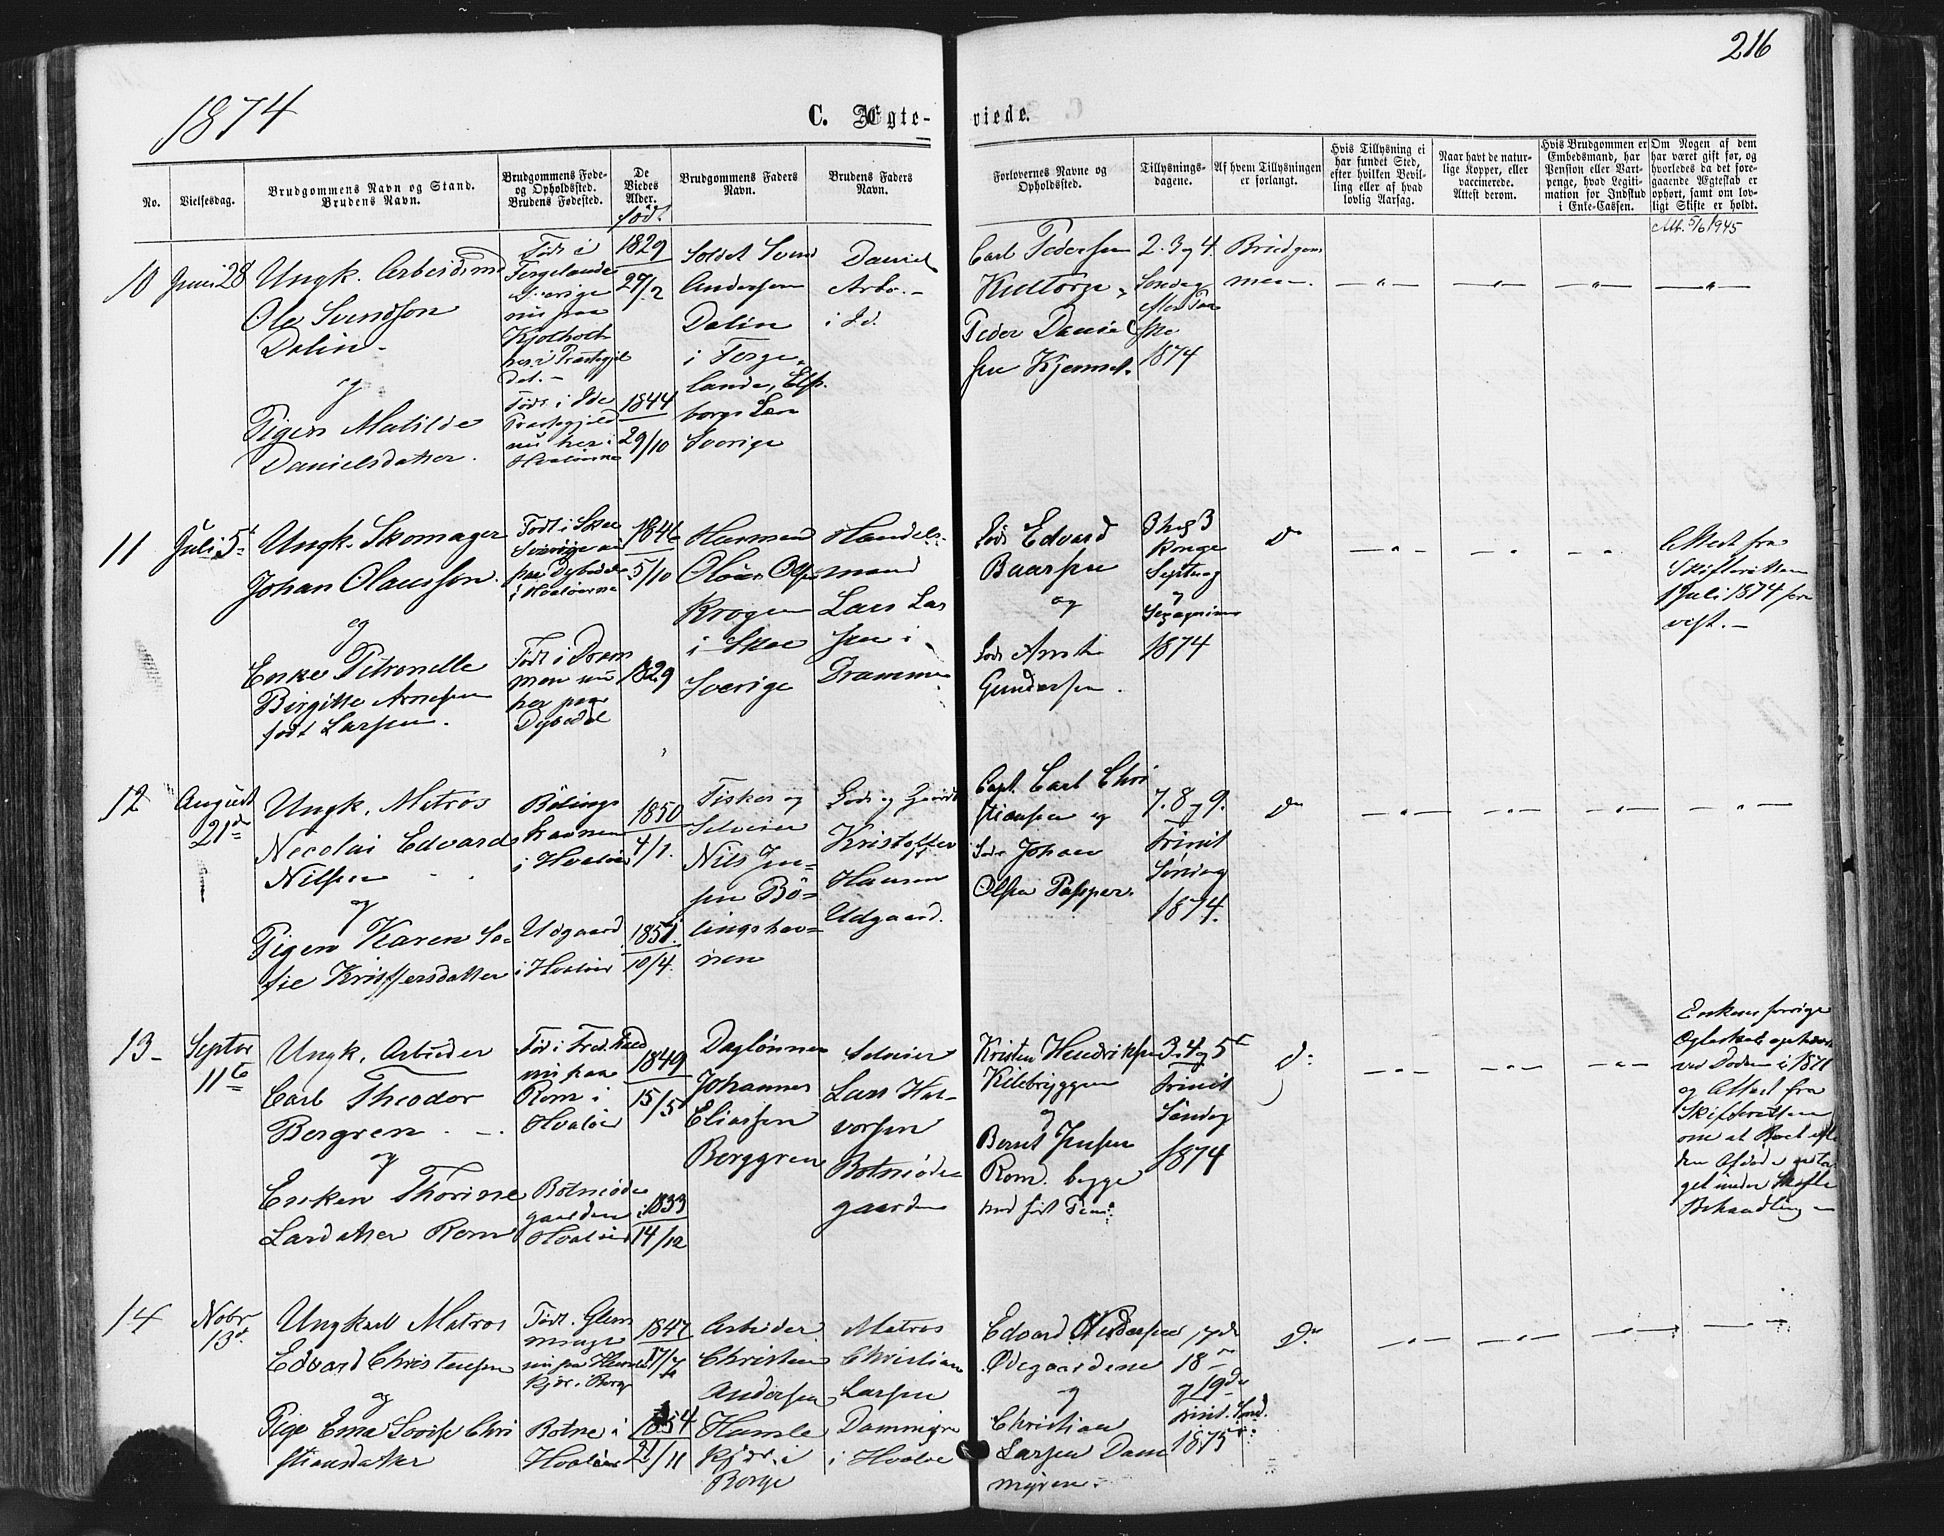 216
1874
C. Ægte- viede.
No.
Vielsesdag.
Brudgommens Navn og Stand.
Brudens Navn.
Brudgommens Føde-
og Opholdssted.
Brudens Fødested.
De
Viedes
Alder.
født
Brudgommens Faders
Navn.
Brudens Faders
Navn.
Forlovernes Navne og
Opholdssted.
Tillysnings-
dagene.
Af hvem Tillysningen
er forlangt.
Hvis Tillysning ei
har fundet Sted,
efter hvilken Bevil-
ling eller af hvad
lovlig Aarsag.
Naar havt de natur-
lige Kopper, eller
vaccinerede.
Attest derom.
Hvis Brudgommen er
Embedsmand, har
Pension eller Vart-
penge, hvad Legiti-
mation for Indskud
i Enke-Cassen.
Om Nogen af dem
har været gift før, og
hvorledes da det fore-
gaaende Ægteskab er
ophørt, samt om lov-
ligt Skifte er holdt.
Att. 5/6 1945
10
Juni 28
Ungk. Arbeidsmd
Ole Svendsen
Dalin -
og
Pigen Matilde
Danielsdatter.
Født i
Sverige
nu paa
her i Præstegjel
det. -
Født i Ide
Præstegjeld
nu her i
Hvaløerne
1829
27/2
1844
29/10
Soldat Svend
Andersen
Dalin
i Ferge
lande, Elfs
borgs Len
Sverige
Daniel
Arbo. -
i Id.
Carl Pedersen
Peder Daniel
sen Kjemset.
2. 3 og 4.
Søndag
efter Paa
ske
1874
Brudgom
men.
11
Juli 5
Ungk. Skomager
Johan Olausson.
og
Enke Petronelle
Birgitte Arnesen
født Larsen.
Født i Skee
Sverige nu
paa Dybedal
i Hvaløerne
Født i Dram
men nu
her paa
Dybedal
1846
5/10
1829
Herman
Olaus Olsen
Krogen
i Skee
Sverige
Handels-
mand
Lars Lar
sen i
Drammen
Lods Edvard
Baarsen
og
Lods Arnt
Gundersen.
3 hel. 3
Konge
Septuag
og
Sexagesima
1874
do
Attest fra
Skifteretten
1 Juli 1874 fore
vist. -
12
August
21de
Ungk. Matros
Nicolai Edvard
Nilsen
og
Pigen Karen So-
fie Kristofersdatter
Bølings
havnen
i Hvaløer
Udgaard
i Hvaløer
1850
4/1.
1851.
10/4.
Fisker og
Selveier
Nils Jen-
sen Bø-
lingshav-
nen
Lods og Gaardb
Kristoffer
Hansen
Udgaard.
Capt. Carl Chri
stiansen og
Lods Johan
Olsen Papper.
7. 8 og 9.
Trinit
Søndag
1874.
do
13 -
Septbr
11te
Ungk. Arbeider
Carl Theodor
Bergren
og
Enken Thorine
Larsdatter Rom
Fød i Fred.hald
nu paa
Rom i
Hvaløer
Botneøde
gaarden i
Hvaløer
1849
15/5
1833
14/12
Daglønner
Johannes
Eliassen
Berggren
Selveier
Lars Hal-
vorsen
Botneøde
gaarden
Kristen Hendriksen
Kilebryggen
og
Bernt Jensen
Rom. begge
3. 4 og 5te
Trinit
Søndag
1874
do
Enkens forrige
Ægteskab ophævet
ved Døden i 1871
og Attest fra
Skifteretten
om at Boet efter
den Afdøde er ta
get under Skifte
Behandling -
14
Novbr
13de
Ungkarl Matros
Edvard Christensen
og
Pige Ema Lovise Chri
stiansdatter
Født. Glem
minge
nu paa Humle
kjær i Borge
Botne i
Hvaløer
1847
17/7
1854
21/11
Arbeider
Christen
Andersen
Humle
kjær i
Borge
Matros
Christian
Larsen
Dammyren
i Hvaløe
Edvard Andersen
Ødegaardene
og
Christian
Larsen Dam
myren.
17de
18
og 19de
Trinit. Sønd.
1875
do